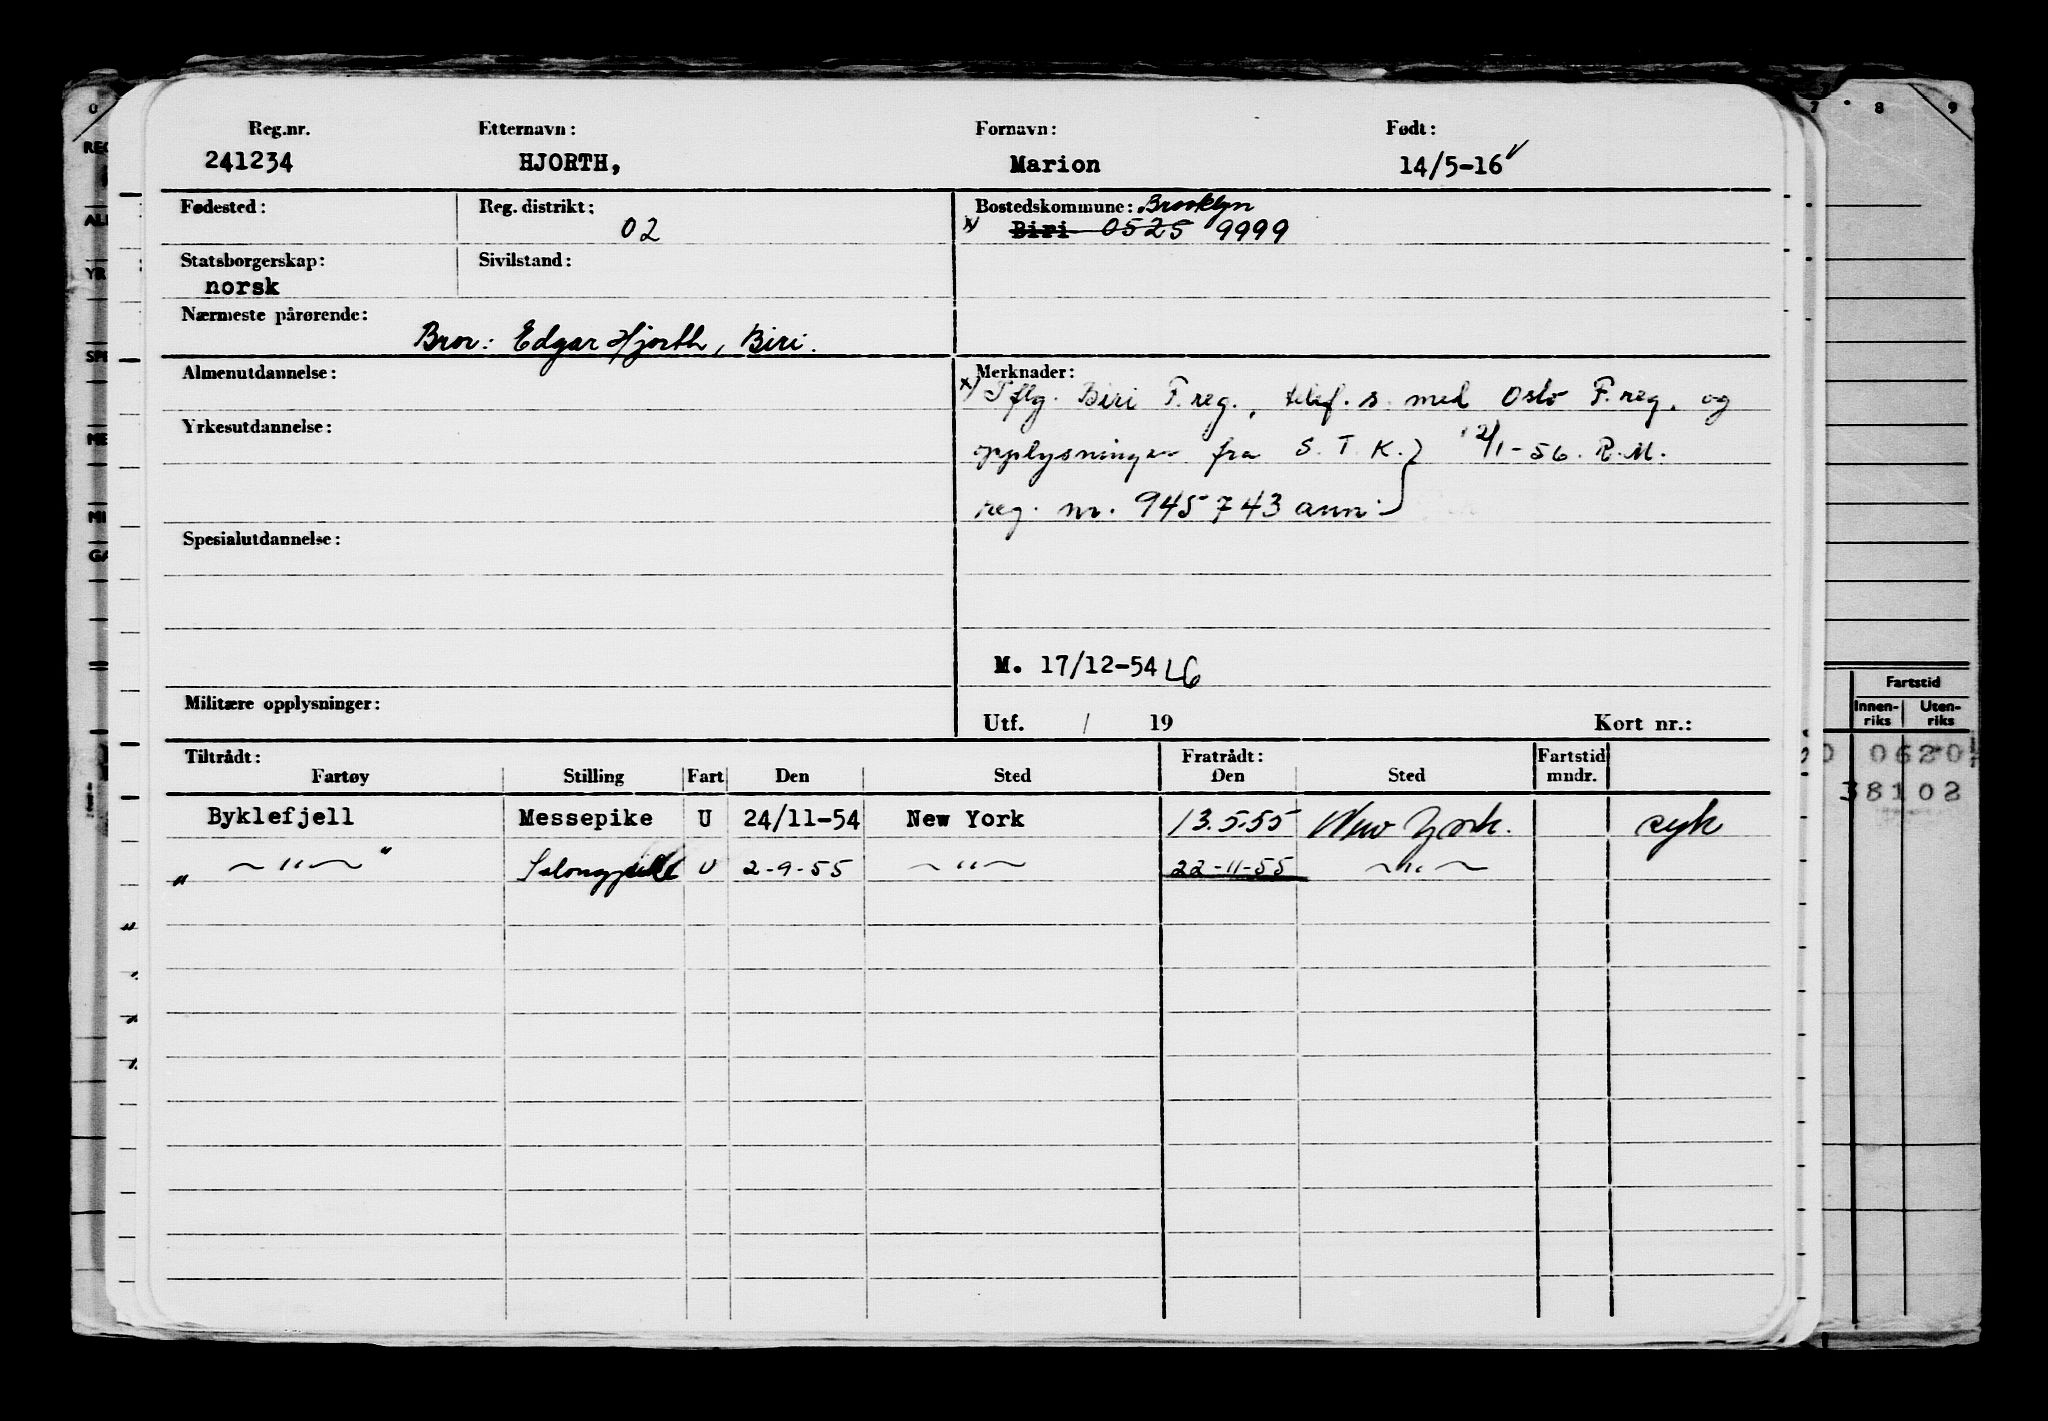 Reg.nr. Etternavn: Fornavn: Født:
241234 HJORTH, Marion 14/5-16 v
Fødested: Reg. distrikt: 02 Bostedskommune: Brooklyn
x/ Biri 0525 9999
Statsborgerskap: Sivilstand:
norsk
Nærmeste pårørende:
Bror: Edgar Hjorth, Biri.
Almenutdannelse: Merknader:
x) Iflg. Biri F.reg., telef. s. med Oslo F.reg. og
Yrkesutdannelse:
opplysninger fra S.T.K. } 12/1-56. R.M.
reg. nr. 945743 ann.
Spesialutdannelse:
M. 17/12-54 LG
Militære opplysninger:
Utf. / 19 Kort nr.:
Tiltrådt: Fratrådt: Fartstid
Fartøy Stilling Fart Den Sted Den Sted mndr.
Byklefjell Messepike U 24/11-54 New York 13.5.55 New York. syk
„ —"— " Salongpike U 2-9-55 —"— 22-11-55 —"—
0 7 8 9
REG
ALM
YR
SPE
ME
MI
GA
Fartstid
Innen- Uten-
riks riks
0 0620
38102